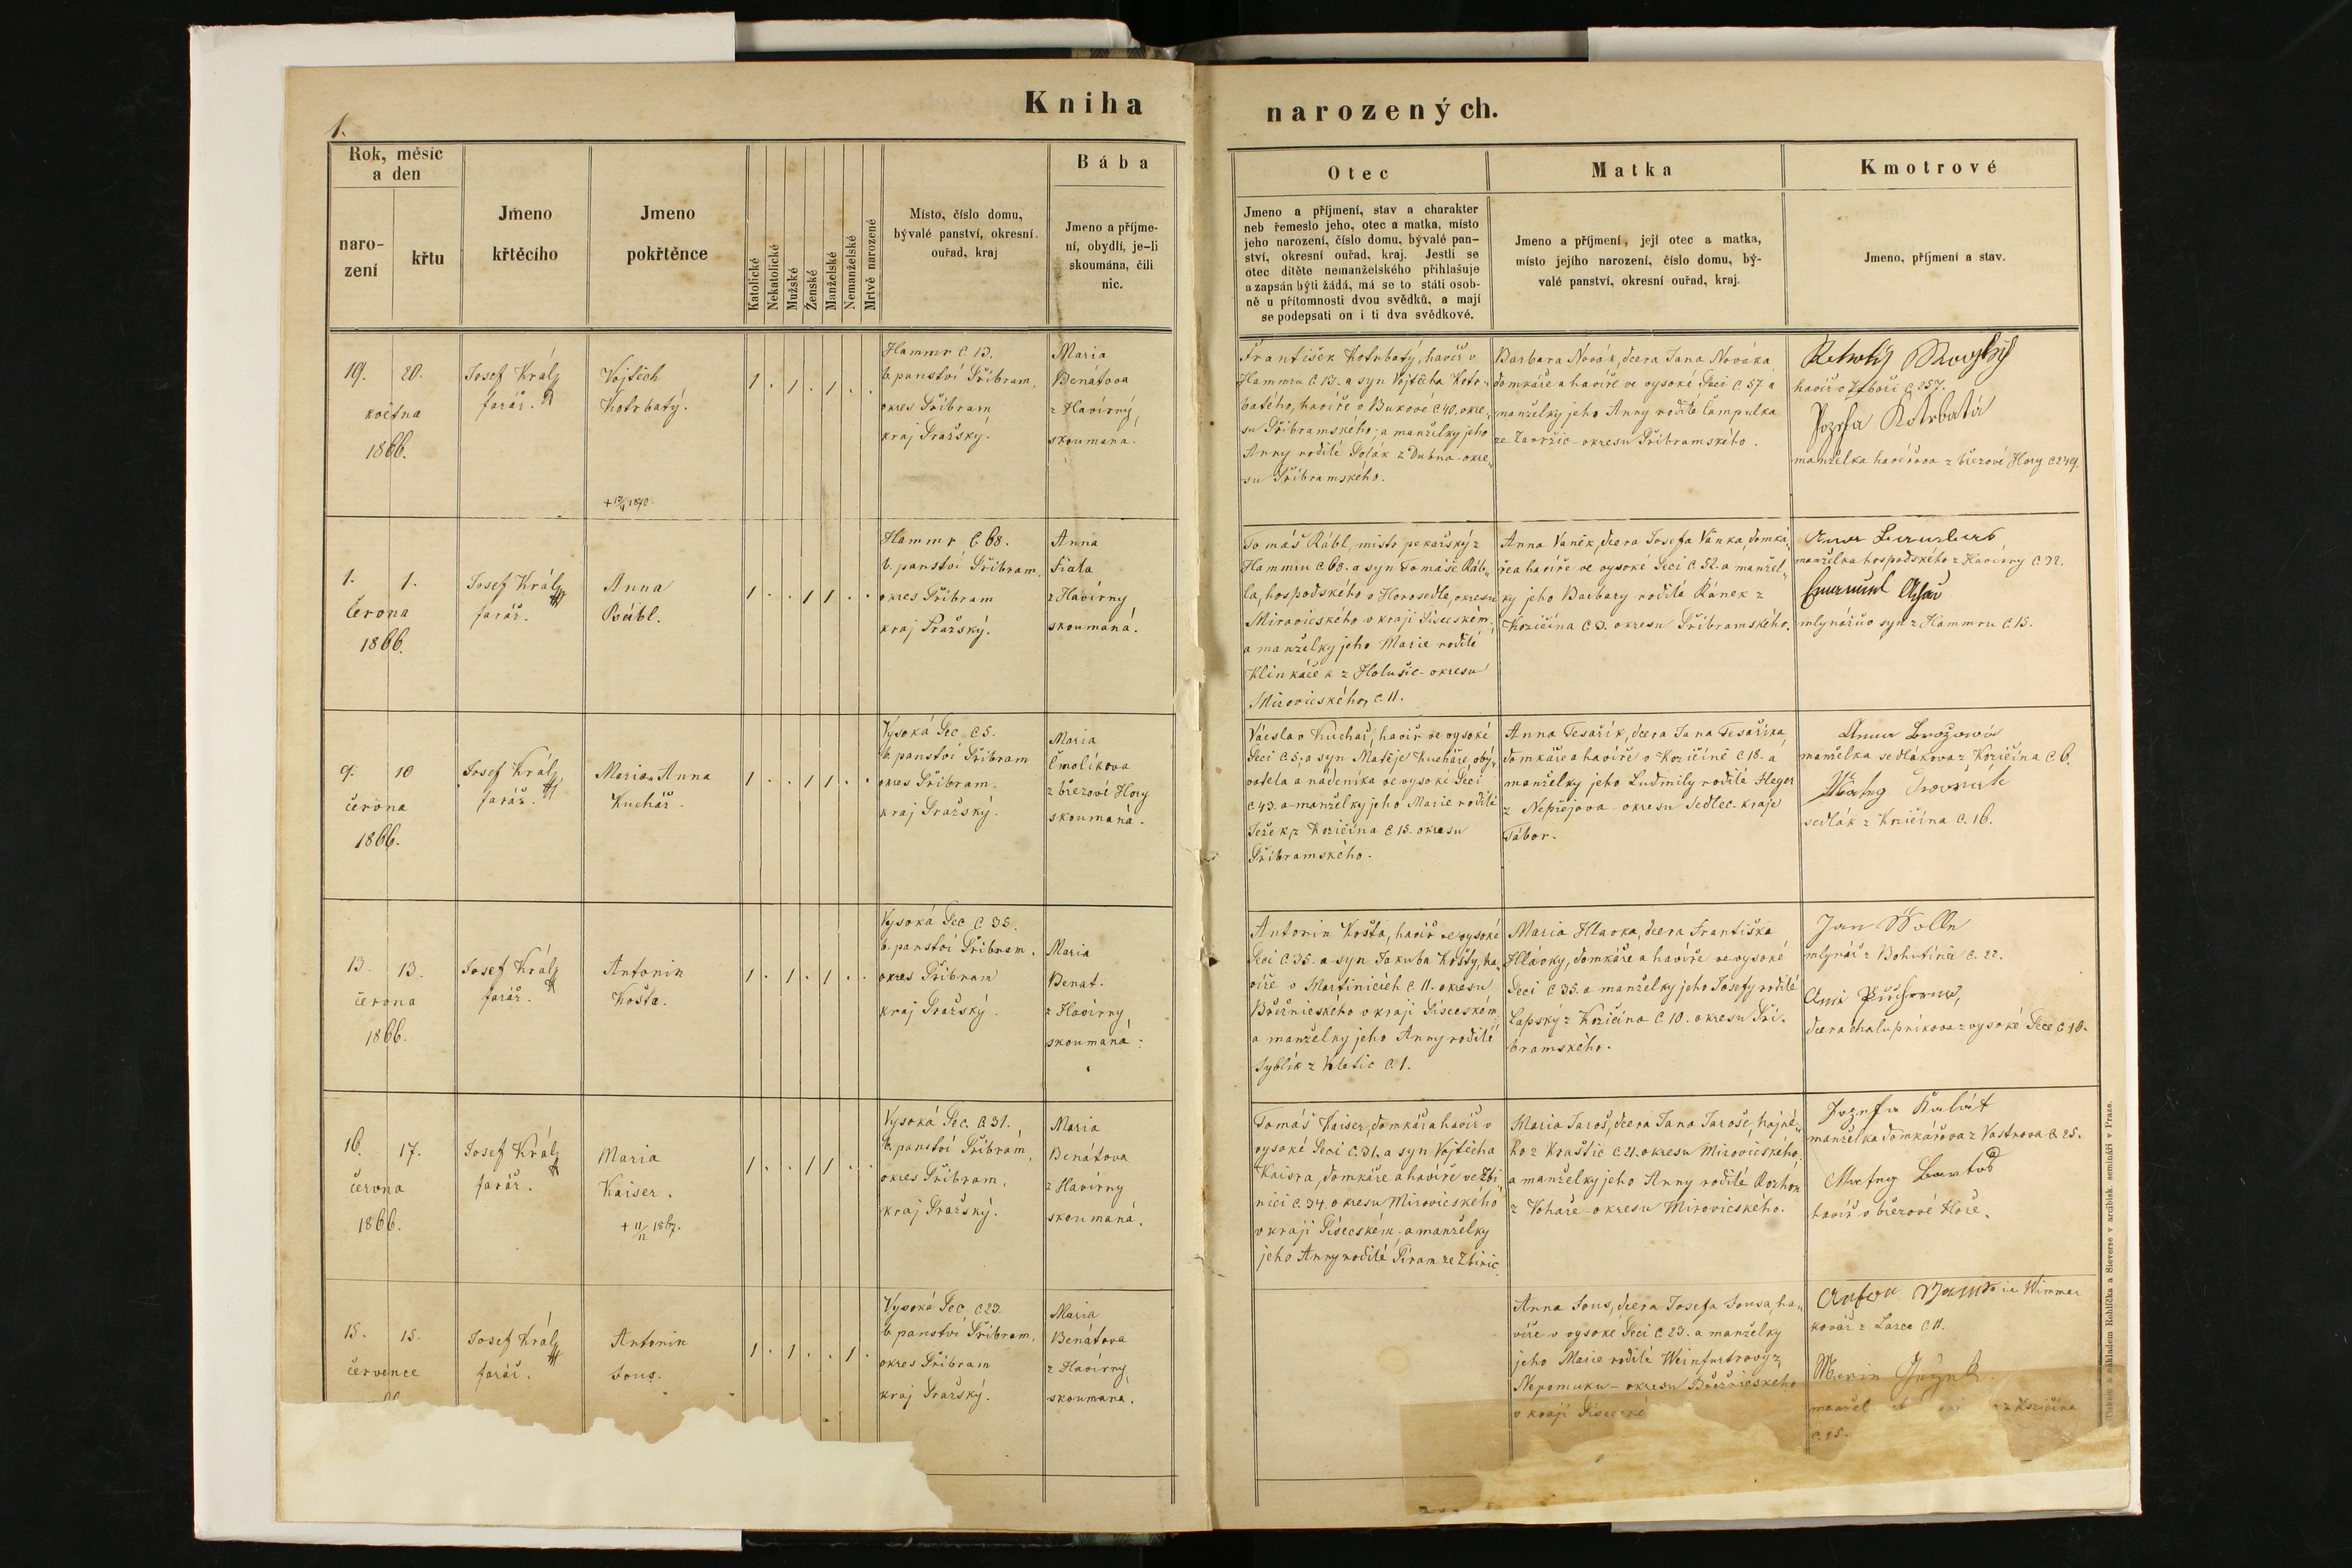 1.
Kniha narozených.
Rok, měsíc
a den
naro-
zení
křtu
Jmeno
křtěcího
Jmeno
pokřtěnce
Katolické
Nekatolické
Mužské
Ženské
Manželské
Nemanželské
Mrtvě narozené
Místo, číslo domu,
bývalé panství, okresní
ouřad, kraj
Bába
Jmeno a příjme-
ní, obydlí, je-li
skoumána, čili
nic.
Otec
Jmeno a příjmení, stav a charakter
neb řemeslo jeho, otec a matka, místo
jeho narození, číslo domu, bývalé pan-
ství, okresní ouřad, kraj. Jestli se
otec dítěte nemanželského přihlašuje
a zapsán býti žádá, má se to státi osob-
ně u přítomnosti dvou svědků, a mají
se podepsati on i ti dva svědkové.
Matka
Jmeno a příjmení, její otec a matka,
místo jejího narození, číslo domu, bý-
valé panství, okresní ouřad, kraj.
Kmotrové
Jmeno, příjmení a stav.
19. 20.
května
1866.
Josef Král,
farář.
Vojtěch
Kotrbatý.
1 . 1 . 1 . .
Hammr č. 13.
b. panství Příbram,
okres Příbram
kraj Pražský.
Maria
Benátova
z Havírny,
skoumana.
František Kotrbatý, havíř v
Hammru č. 13. a syn Vojtěcha Kotr-
batého, havíře v Bukové č 40. okre-
su Příbramského; a manželky jeho
Anny rodilé Polák z Dubna-okre-
su Příbramského.
Barbara Novák, dcera Jana Nováka
domkáře a havíře ve vysoké Peci č. 57 a
manželky jeho Anny rodilé Čampulka
ze Zavržic-okresu Příbramského.
havíř č 257.
Kotrbatá
manželka havířova z březové Hory č 249.
1. 1.
Června
1866.
Josef Král,
farář.
Anna
Rábl.
1 . . 1 1 . .
Hammr č. 68.
b. panství Příbram,
okres Příbram
kraj Pražský.
Anna
Fiala
z Havírny
skoumaná.
Tomáš Rábl, mistr pekařský z
Hammru č 68. a syn Tomáše Ráb-
la, hospodského v Horosedle, okresu
Mirovického v kraji Píseckém;
a manželky jeho Marie rodilé
z Holušic-okresu
Mirovického, č. 11.
Anna Vaněk, dcera Josefa Vaňka, domká-
ře a havíře ve vysoké Peci č 52. a manžel-
ky jeho Barbary rodilé Ránek z
Kozičína č 3. okresu Příbramského.
manželka hospodského z Havírny č. 92.
mlynářův syn z Hammru č 15.
9. 10
června
1866.
Josef Král,
farář.
Maria Anna
Kuchař.
1 . . 1 1 . .
Vysoká Pec č 5.
b. panství Příbram
okres Příbram.
kraj Pražský.
Maria
Čmolíkova
z březové Hory
skoumaná.
Václav Kuchař, havíř ve vysoké
Peci č 5, a syn Matěje Kuchaře, oby-
vatela a nádeníka ve vysoké Peci
č 43. a manželky jeho Marie rodilé
Ježek, z Kozičína č 15. okresu
Příbramského.
Anna Tesařík, dcera Jana Tesaříka,
domkáře a havíře v Kozičíně č 18. a
manželky jeho Ludmily rodilé Heger
z Nepřejova-okresu Sedlec-kraje
Tábor.
Anna Brožová
manželka sedlákova z Kozičína č 6.
sedlák z Kozičína č. 16.
13. 13.
června
1866.
Josef Král,
farář.
Antonin
Košta.
1 . 1 . 1 . .
Vysoká Pec č 35.
b. panství Příbram.
okres Příbram
kraj Pražský.
Maria
Benat.
z Havírny,
skoumaná.
Antonin Košta, havíř ve vysoké
Peci č 35. a syn Jakuba Košty, ha-
víře v Martinicích č. 11. okresu
Březnického v kraji Píseckém
a manželky jeho Anny rodilé
Syblík z Kletic č 1.
Maria Hlavka, dcera Františka
Hlávky, domkáře a havíře ve vysoké
Peci č 35. a manželky jeho Josefy rodilé
Lapský z Kozičína č 10. okresu Pří-
bramského.
Jan Wolln
mlynář z Bohutína č. 22.
dcera chalupníkova z vysoké Pece č 10.
16. 17.
června
1866.
Josef Král,
farář.
Maria
Kaiser.
1 . . 1 1 . .
Vysoká Pec. č 31.
b. panství Příbram,
okres Příbram,
kraj Pražský.
Maria
Benátova
z Havírny
skoumaná.
Tomáš Kaiser, domkář a havíř v
vysoké Peci č. 31. a syn Vojtěcha
Kaisra, domkáře a havíře ve Zbi-
nici č. 34. okresu Mirovického
v kraji Píseckém; a manželky
jeho Anny rodilé Piram ze Zbinic.
Maria Jaroš, dcera Jana Jaroše, hajné-
ho z Kraštic č. 21. okresu Mirovického,
a manželky jeho Anny rodilé Rozhoň
z Vohaře-okresu Mirovického.
Jozefa Kalát
manželka domkářova z Vastrova č. 25.
Matěj Bartoš
havíř v březové Hoře.
15. 15.
července
Josef Král,
farář.
Antonin
Sous.
1 . 1 . . 1 .
Vysoká Pec č 23.
b. panství Příbram,
okres Příbram
kraj Pražský.
Maria
Benátova
z Havírny,
skoumana.
Anna Sous, dcera Josefa Sousa, ha-
víře v vysoké Peci č 23. a manželky
jeho Marie rodilé Weinfurtrovy z
Nepomuku-okresu Březnického
v kraji
Wimmer
kovář z Lazce č 11.
z Kozičína
č. 15.
Tiskem a nákladem Rohlíčka a Sieverse v arcibisk. semináři v Praze.